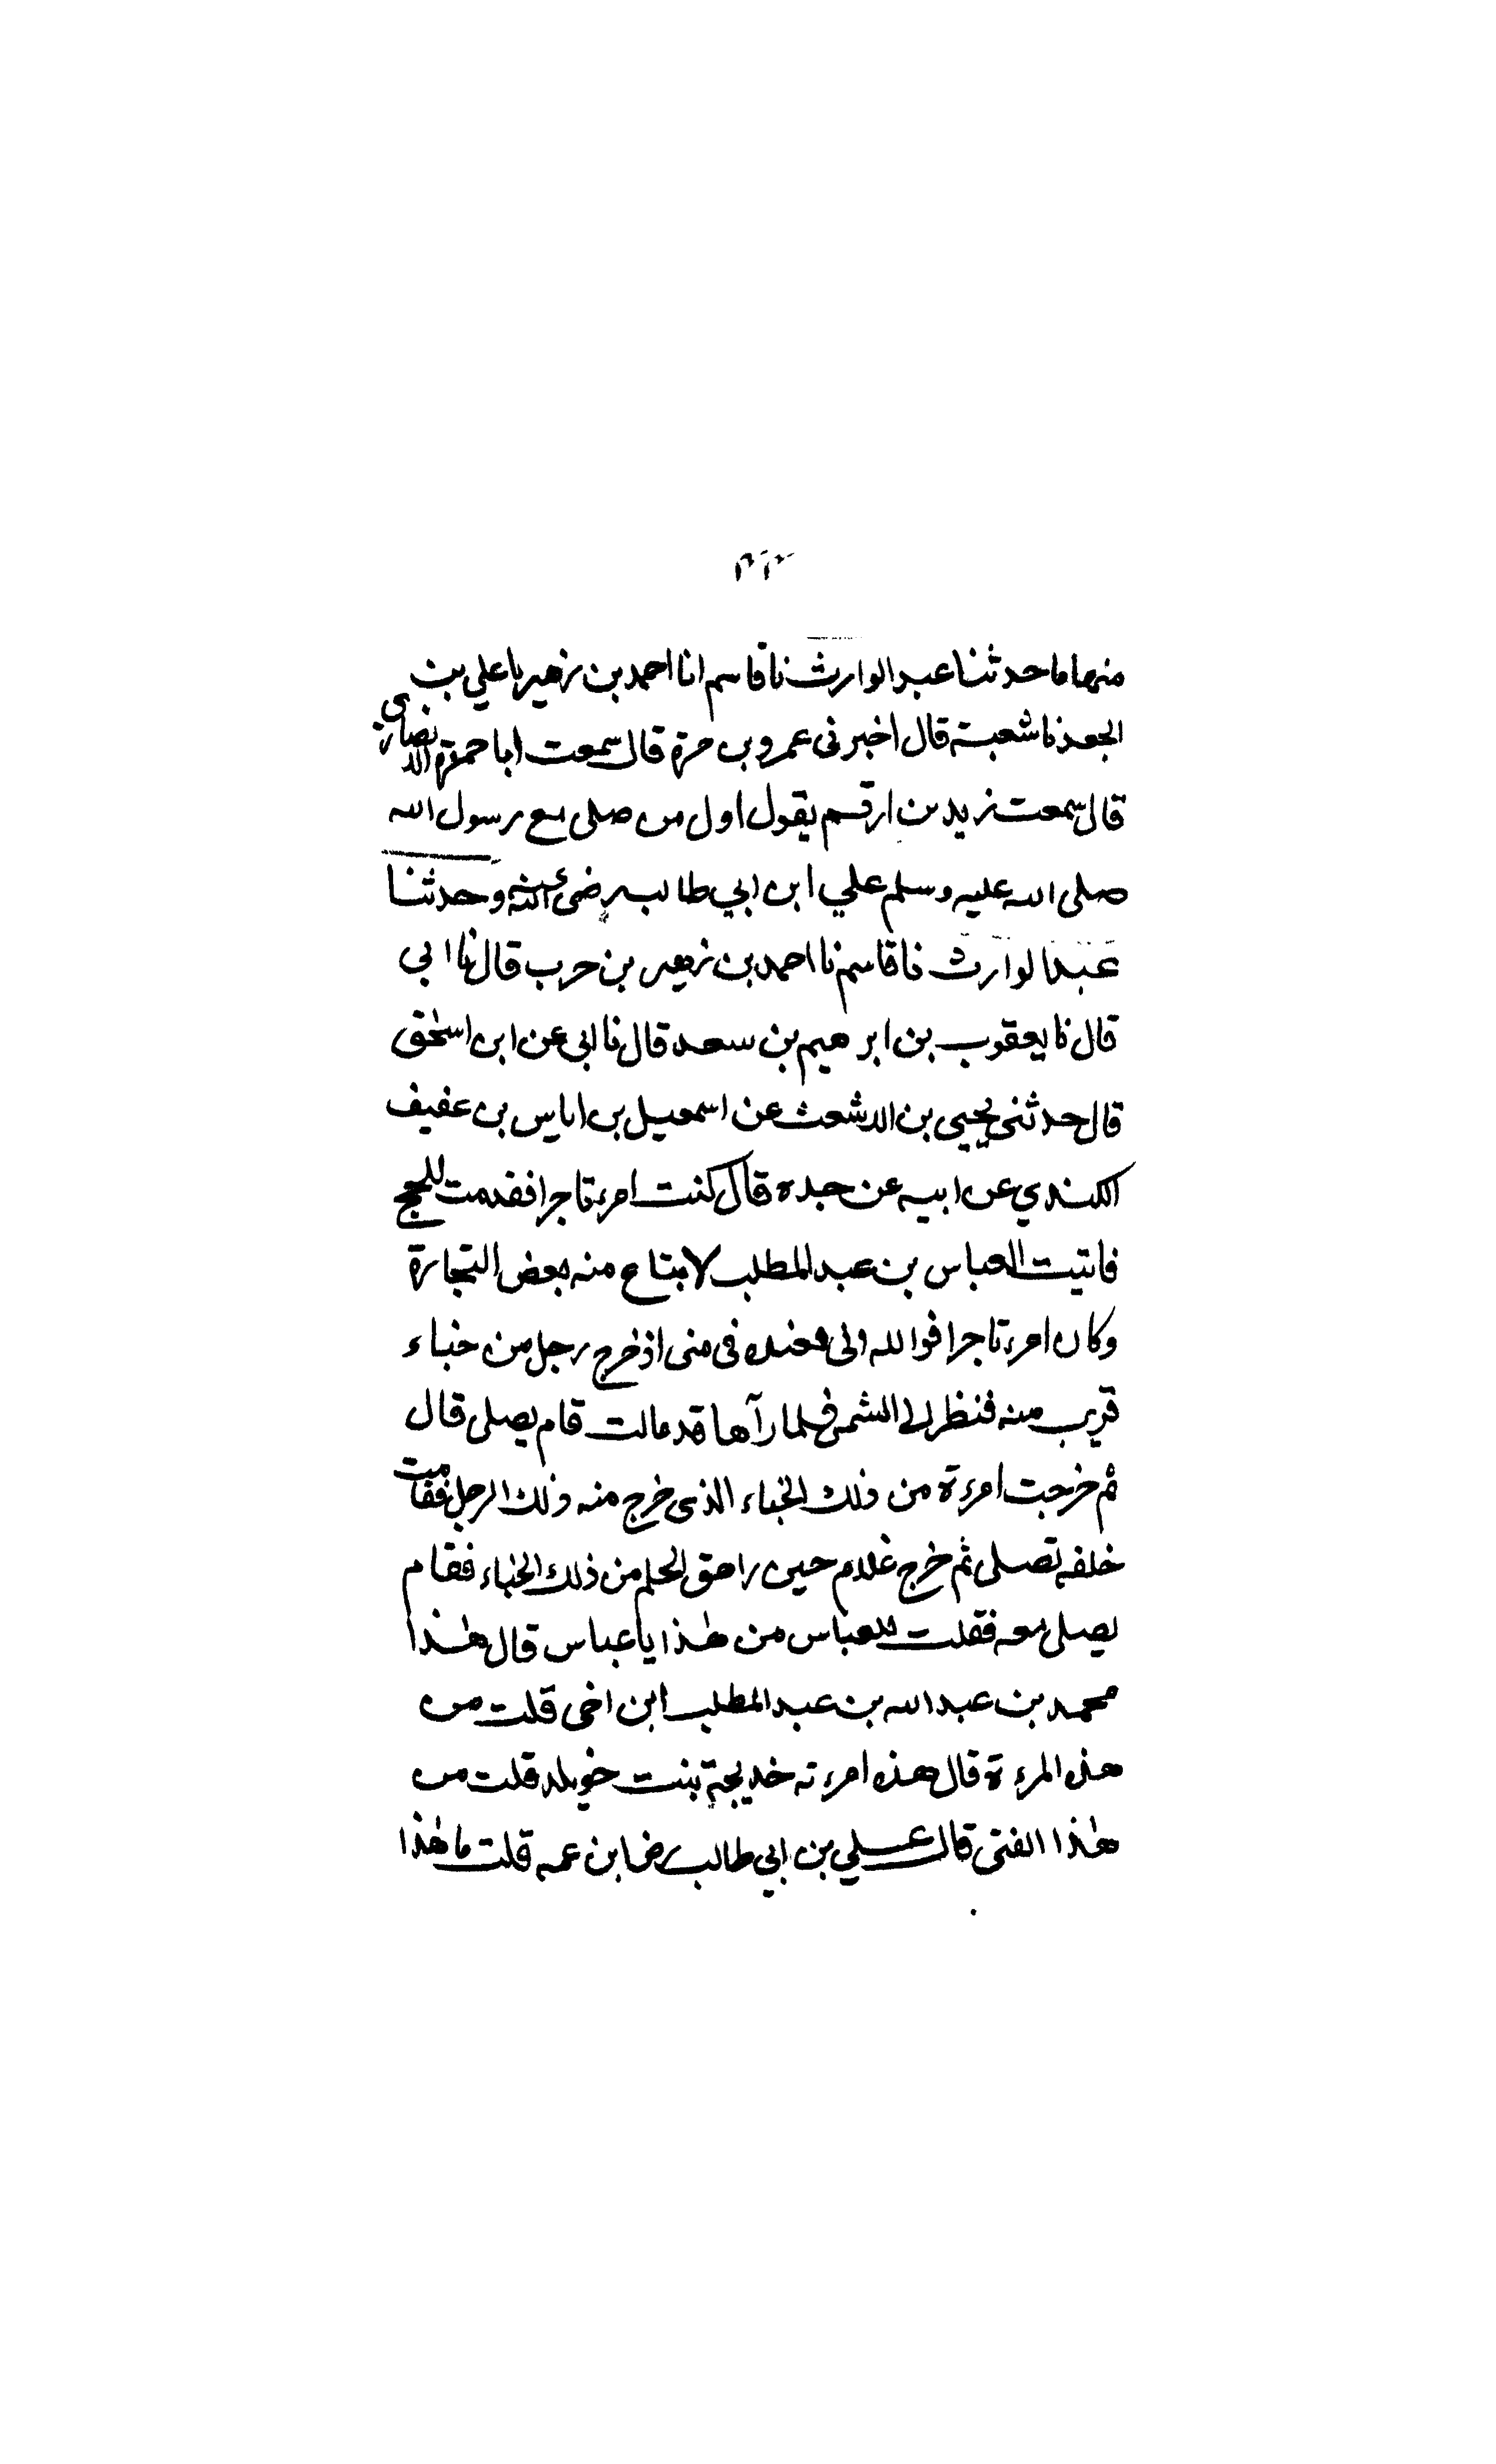 منها ما حدثنا عبد الوارث نا قاسم انا احمد بن زهير نا علي بن
الجعد نا شعبة قال اخبرنى عمرو بن مرة قال سمعت ابا حمزة الانصارى
قال سمعت زيد بن ارقم يقول اول من صلى مع رسول الله
صلى الله عليه وسلم علي ابن ابي طالب رضى الله عنه وحدثنا
عبد الوارث نا قاسم نا احمد بن زهير بن حرب قال نا ابى
قال نا يعقوب بن ابرهيم بن سعد قال نا ابى عن ابن اسحق
قال حدثنى يحيى بن الاشعث عن اسمعيل بن اياس بن عفيف
الكندي عن ابيه عن جده قال كنت امرء تاجرا فقدمت للحج
فاتيت العباس بن عبد المطلب لابتاع منه بعض التجارة
وكان امرء تاجرا فوالله انى لعنده فى منى اذ خرج رجل من خباء
قريب منه فنظر الى الشمس فلما رآها قد مالت قام يصلى قال
ثم خرجت امرءة من ذلك الخباء الذى خرج منه ذلك الرجل فقامت
خلفه تصلى ثم خرج غلام حين راهق الحلم من ذلك الخباء فقام
يصلى معه فقلت للعباس من هذا يا عباس قال هذا
محمد بن عبد الله بن عبد المطلب ابن اخى قلت من
هذه المرءة قال هذه امرءته خديجة بنت خويلد قلت من
هذا الفتى قال على بن ابي طالب رض ابن عمه قلت ما هذا